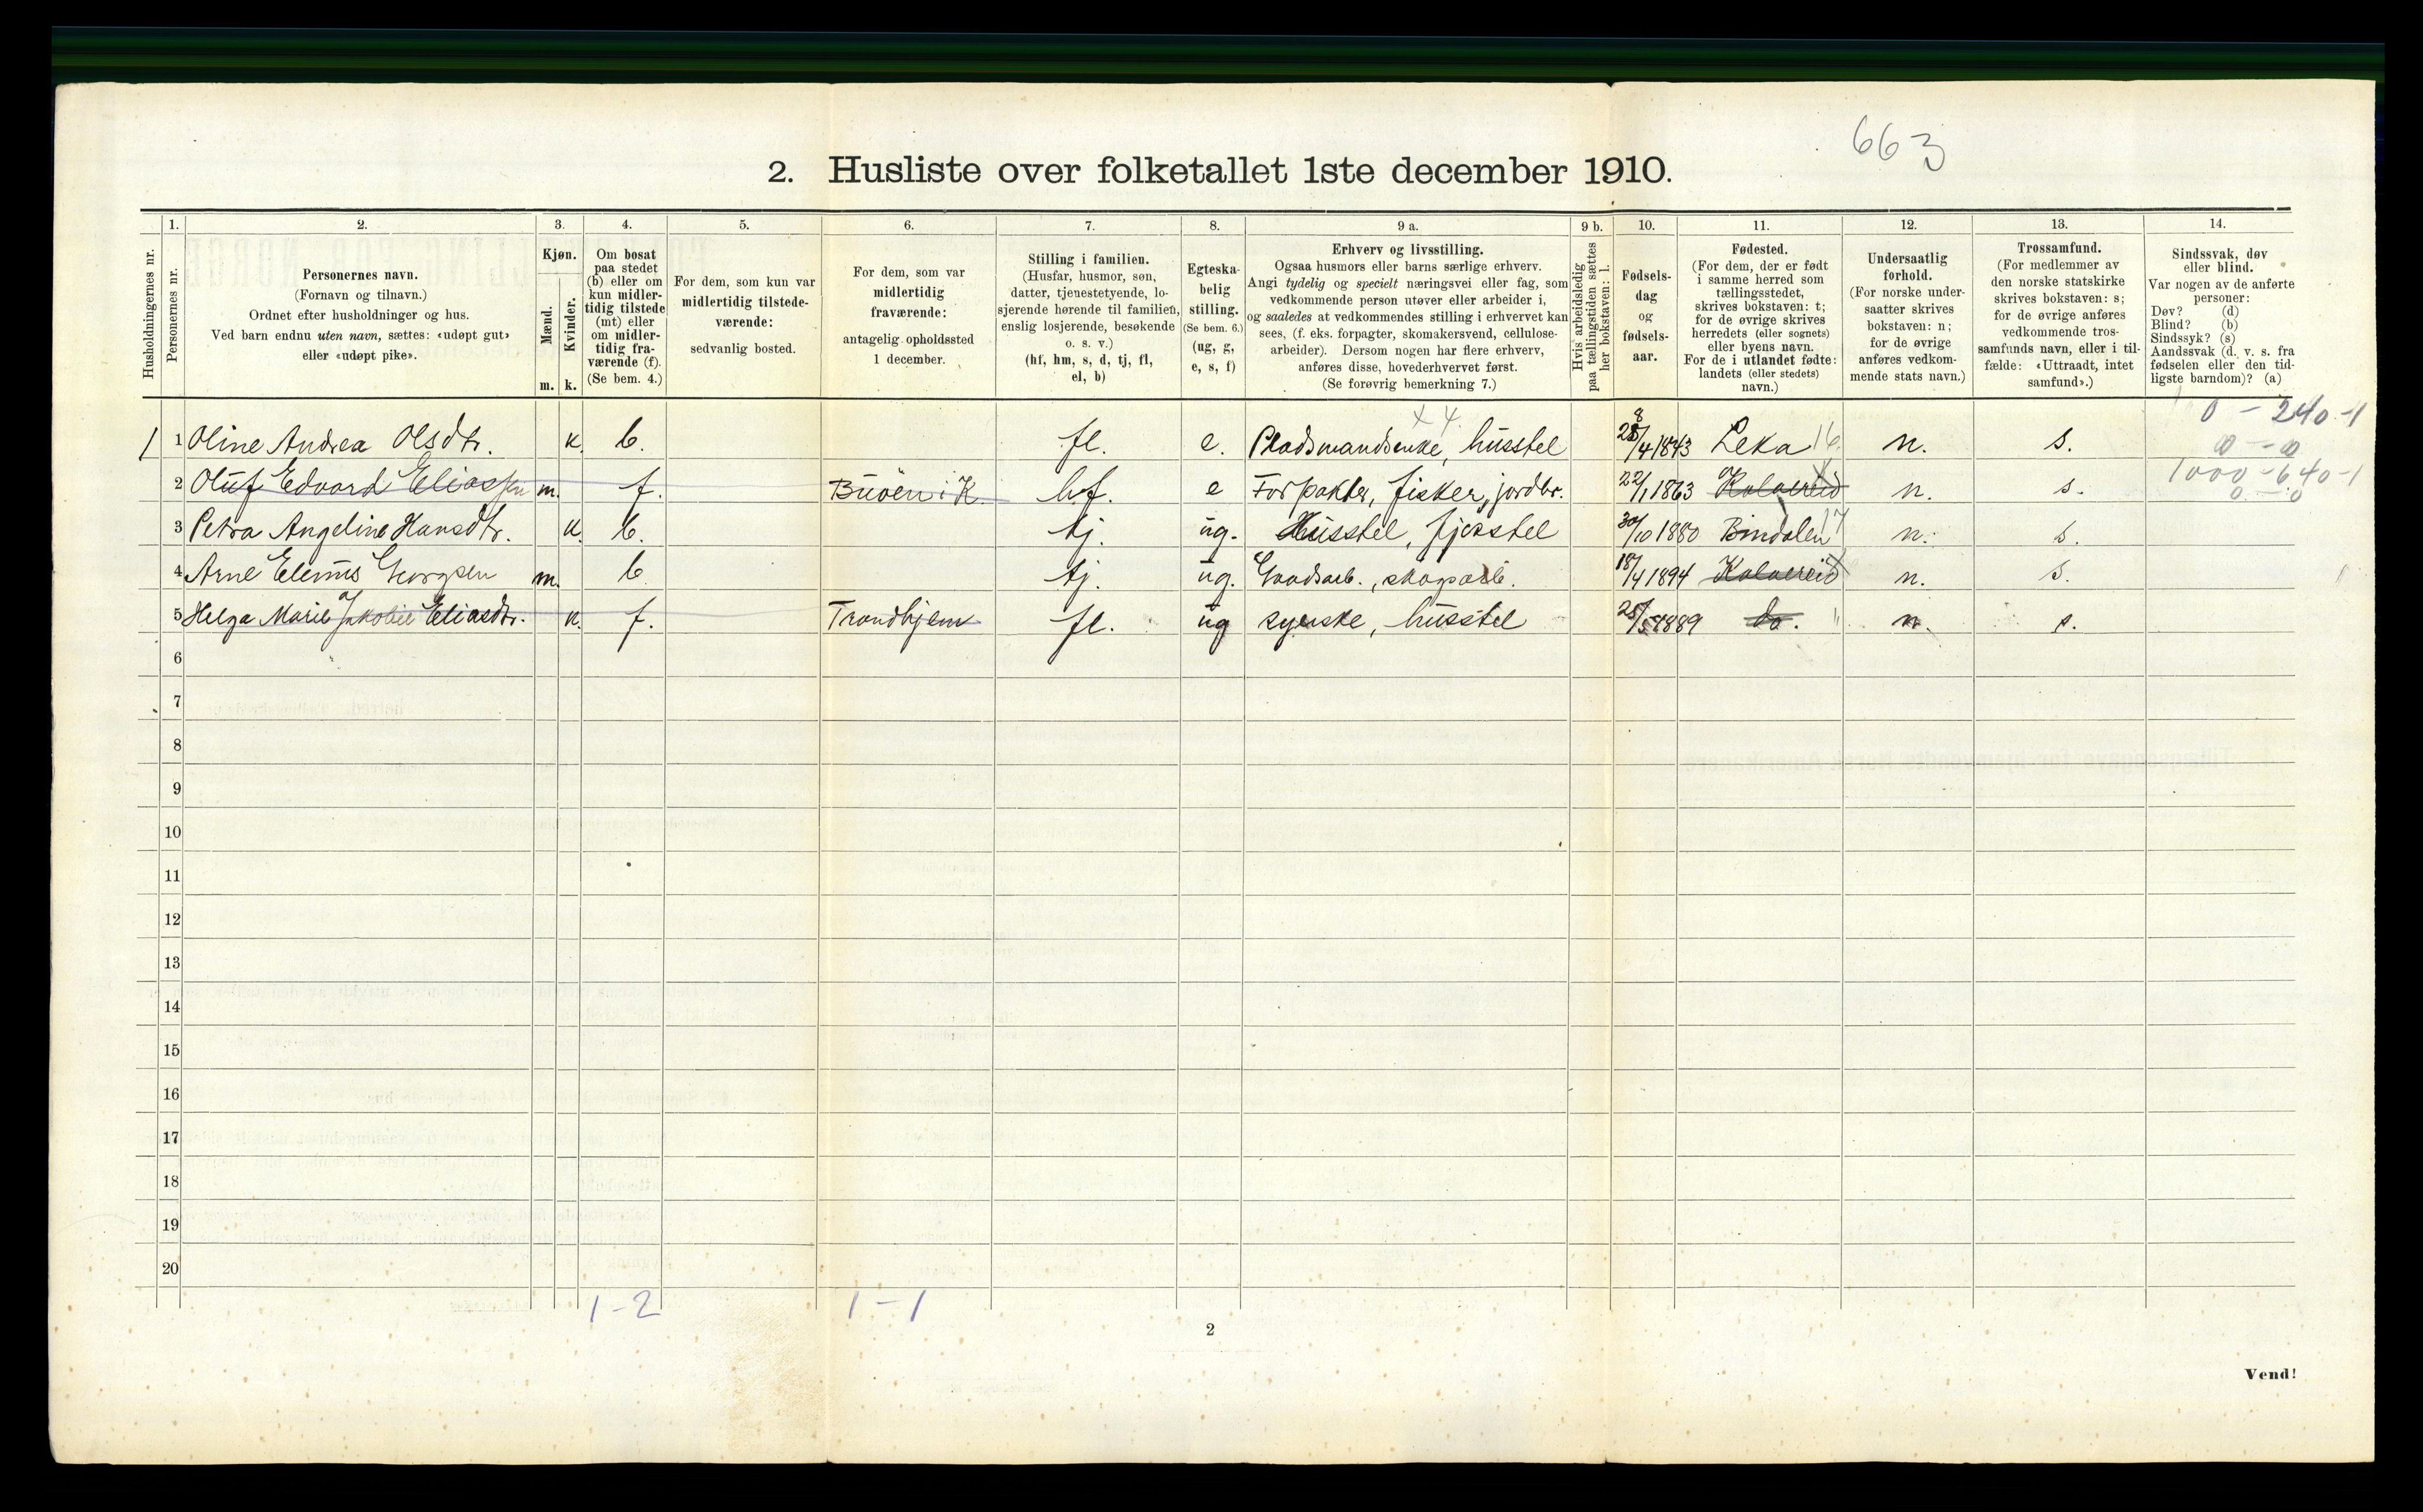 663
2. Husliste over folketallet 1ste december 1910.
Husholdningernes nr.
1. Personernes nr.
2. Personernes navn. (Fornavn og tilnavn.) Ordnet efter husholdninger og hus. Ved barn endnu uten navn, sættes: «udøpt gut» eller «udøpt pike».
3. Kjøn. Mænd. m. Kvinder. k.
4. Om bosat paa stedet (b) eller om kun midlertidig tilstede (mt) eller om midlertidig fraværende (f). (Se bem. 4.)
5. For dem, som kun var midlertidig tilstedeværende: sedvanlig bosted.
6. For dem, som var midlertidig fraværende: antagelig opholdssted 1 december.
7. Stilling i familien. (Husfar, husmor, søn, datter, tjenestetyende, losjerende hørende til familien, enslig losjerende, besøkende o. s. v.) (hf, hm, s, d, tj, fl, el, b)
8. Egteskabelig stilling. (Se bem. 6.) (ug, g, e, s, f)
9 a. Erhverv og livsstilling. Ogsaa husmors eller barns særlige erhverv. Angi tydelig og specielt næringsvei eller fag, som vedkommende person utøver eller arbeider i, og saaledes at vedkommendes stilling i erhvervet kan sees, (f. eks. forpagter, skomakersvend, cellulosearbeider). Dersom nogen har flere erhverv, anføres disse, hovederhvervet først. (Se forøvrig bemerkning 7.)
9 b. Hvis arbeidsledig paa tællingstiden sættes her bokstaven: l.
10. Fødselsdag og fødselsaar.
11. Fødested. (For dem, der er født i samme herred som tællingsstedet, skrives bokstaven: t; for de øvrige skrives herredets (eller sognets) eller byens navn. For de i utlandet fødte: landets (eller stedets) navn.)
12. Undersaatlig forhold. (For norske undersaatter skrives bokstaven: n; for de øvrige anføres vedkommende stats navn.)
13. Trossamfund. (For medlemmer av den norske statskirke skrives bokstaven: s; for de øvrige anføres vedkommende trossamfunds navn, eller i tilfælde: «Uttraadt, intet samfund».)
14. Sindssvak, døv eller blind. Var nogen av de anførte personer: Døv? (d) Blind? (b) Sindssyk? (s) Aandssvak (d. v. s. fra fødselen eller den tidligste barndom)? (a)
x 4 0 - 240-1
1 1 Oline Andrea Olsdtr. k. b. fl. e. Pladsmandsenke, husstel 28/4 1843 Leka 16 n. s. 0 - 0
2 Oluf Edvard Eliassen m. f. Buöen i K. hf. e Forpakter, fisker, jordbr. 22/1 1863 Kolvereid n. s. 1000-640-1 0 - 0
3 Petra Angeline Hansdtr. k. b. tj. ug. Husstel, fjøsstel 30/10 1880 Bindalen 17 n. s.
4 Arne Elenus Georgsen m. b tj. ug. Gaadsarb., skogsarb. 18/4 1894 Kolvereid n. s.
5 Helga Marie Jakobie Eliasdtr. k. f. Trondhjem fl. ug syerske, husstel 25/5 1889 do. n. s.
6
7
8
9
10
11
12
13
14
15
16
17
18
19
20
1-2 1-1
2
Vend!